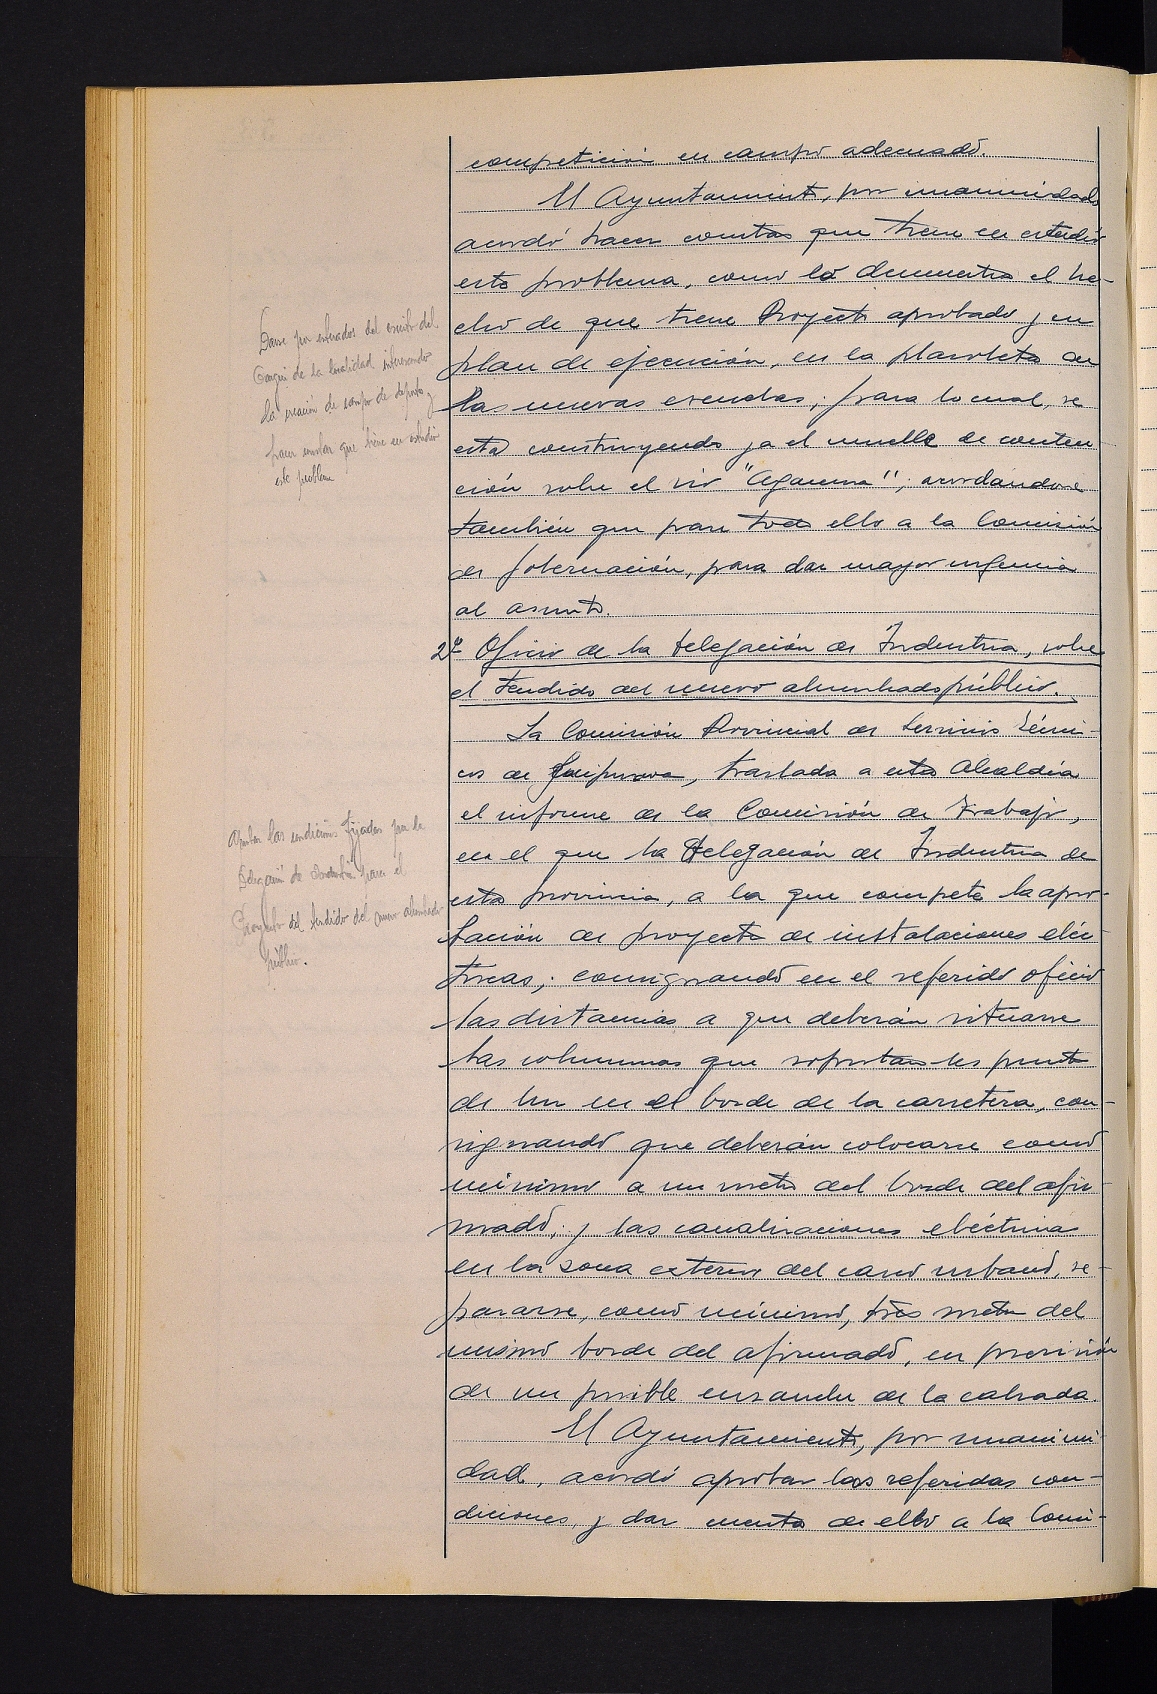 competición en campo adecuado.
El Ayuntamiento, por unanimidad
acordó hacer constar que tiene en estudio
este problema, como lo demuestra el he-
cho de que tiene Proyecto aprobado y en
plan de ejecución, en la plazoleta de
las nuevas escuelas; para lo cual, se
está construyendo ya el muelle de conten-
ción sobre el río "Aganma"; acordándose
también que pase todo ello a la Comisión
de Gobernación, para dar mayor urgencia
al asunto.
2º Oficio de la Delegación de Industria, sobre
el tendido del nuevo alumbrado público.
La Comisión Provincial de Servicios Técni-
cos de Guipúzcoa, traslada a esta Alcaldía
el informe de la Comisión de Trabajo,
en el que la Delegación de Industria de
esta provincia, a la que compete la apro-
bación de proyectos de instalaciones eléc-
tricas; consignando en el referido oficio
las distancias a que deberán situarse
las columnas que soportan los puntos
de luz en el borde de la carretera, con-
signando que deberán colocarse como
mínimo a un metro del borde del afir-
mado; y las canalizaciones eléctricas
en la zona exterior del casco urbano, se-
pararse, como mínimo, tres metros del
mismo borde del afirmado, en previsión
de un posible ensanche de la calzada.
El Ayuntamiento, por unanimi-
dad, acordó aprobar las referidas con-
diciones, y dar cuenta de ello a la Comi-
Darse por enterados del escrito del
de la localidad interesando
la creación de campo de deportes y
hacer constar que tiene en estudio
este problema
Aprobar las condiciones fijadas por la
Delegación de Industria para el
Proyecto del tendido del nuevo alumbrado
público.